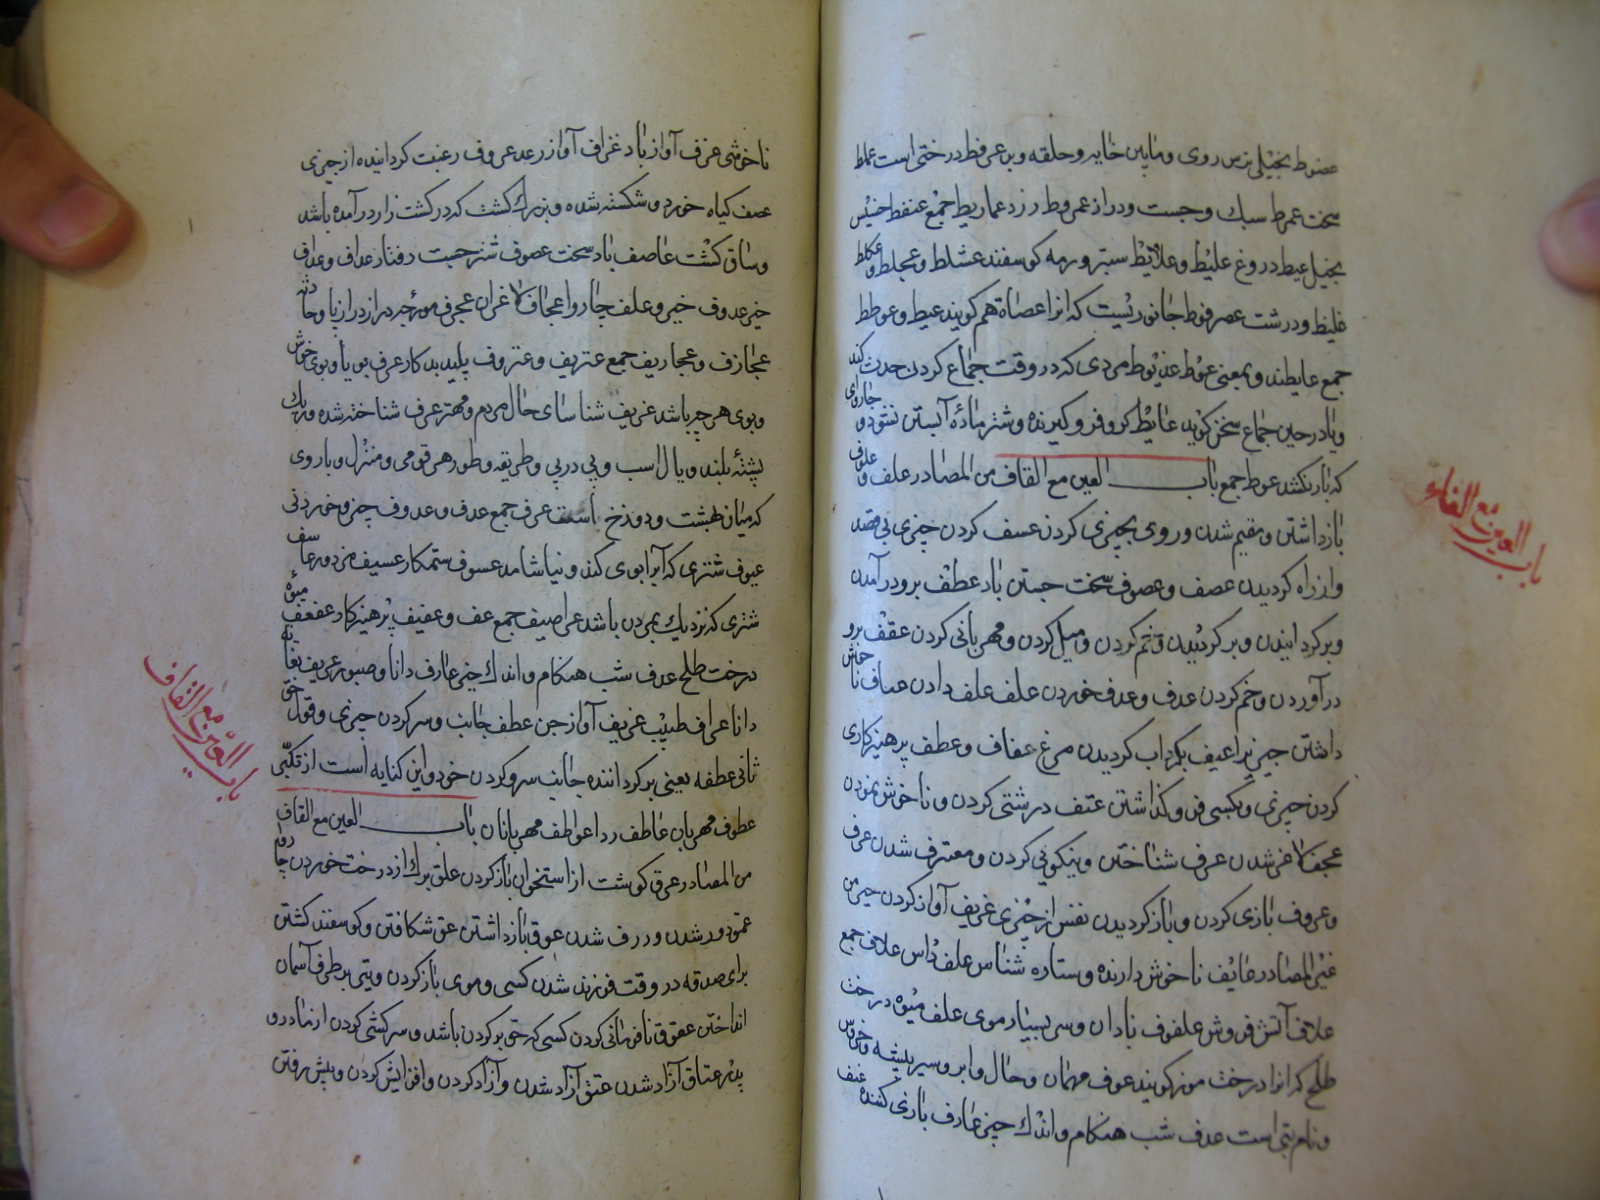 عضوط بخیل ترس روی ومابین خایه وحلقه وبر عرفط درختی است عملط
سخت عمرط سبك وجست ودراز عمروط دزد عماریط جمع عنفط خسیس
بخیل عیط دروغ علیط وعلابط ستبر ورمه کوسفند عشلط وعجلط وعکلط
غلیظ ودرشت عضرفوط جانوریست که انرا عضاة هم کویند عیط وعوطط
جمع عایطند وبمعنی عوط عذیوط مردی که در وقت جماع کردن حدث کند
ویا در حین جماع سخن کوید عایط کروفر وکیرنده وشتر مادۀ آبستن نشود و جاروای
که بار نکشد عوط جمع باب العین مع القاف من المصادر علف وعلوف
بازداشتن ومقیم شدن وروی بچیزی کردن عسف کردن چیزی بی قصد
واز راه کردیدن عصف وعصوف سخت جستن باد عطف برو درآمدن
وبرکردانیدن وبرکردیدن وخم کردن ومیل کردن ومهربانی کردن عقف برو
درآوردن وخم کردن عدف وعدف خوردن علف علف دادن عیاف ناخوش
داشتن چیزیرا عیف بکرداب کردیدن مرغ عفاف وعطف پرهیزکاری
کردن چیزی وبکسی فرو کذاشتن عنف درشتی کردن وناخوش نمودن
عجف لاغر شدن عرف شناختن ونیکویی کردن ومعترف شدن عرف
وعروف بازی کردن وبازکردیدن نفس از چیزی عزیف آواز کردن جن من
غیر المصادر عایف ناخوش دارنده وستاره شناس علف داس علاف جمع
علاف آتش فروش علفوف نادان وسر بسیار موی علف میوه درخت
طلح که انرا درخت موز کویند عوف مهمان وحال وابرو وسیر بیشه وخروس
ونام بتی است عدف شب هنکام واندك چیزی عازف بازی کننده عنف
باب العین مع الفاء
ناخوشی عزف آواز باد عزاف آواز رعد عروف رغبت کرداینده از چیزی
عصف کیاه خورد وشکسته شده وبزرك کشت که در کشت زار درآمده باشد
وساق کشت عاصف باد سخت عصوف شتر جست رفتار عداف وعداف
خیر عدوف خیر وعلف چاروا عجاف لاغران عجرف مورچه دراز دراز پا وحادثه
عجازف وعجاریف جمع عتریف وعتروف پلید بدکار عرف بوی یا وبوی خوش
وبوی هر چیز باشد عریف شناسای حال مردم ومهتر عرف شناخته شده وریك
پشتۀ بلند ویال اسب وپی در پی وطریقه وطور هر قومی ومنزل وباروی
که میان بهشت ودوزخ است عرف جمع عدف وعدوف چیز وخوردنی
عیوف شتری که آبرا بوی کند ونیاشامد عسوف ستمکار عسیف مزدور عاسف
شتری که نزدیك بمردن باشد عراصیف جمع عف وعفیف پرهیزکار عفعف میوۀ
درخت طلح عدف شب هنکام واندك چیزی عارف دانا وصبور عریف بغایه
دانا عراف طبیب عزیف آواز جن عطف جانب وسر کردن چیزی وقوله حق
ثانی عطفه یعنی برکرداننده جانب سر وکردن خود واین کنایه است از تکبّر
عطوف مهربان عاطف ردا عواطف مهربانان باب العین مع القاف
من المصادر عرق کوشت از استخوان باز کردن علق برك از درخت خوردن چاروا
عمق دور شدن وژرف شدن عوق بازداشتن عق شکافتن وکوسفند کشتن
برای صدقه در وقت فرزند شدن کسی وموی باز کردن وپتی بر طرف آسمان
انداختن عقوق نافرمانی کردن کسی که حق بر کردن باشد وسرکشی کردن از مادر و
پدر عتاق آزاد شدن عتق آزاد شدن وآزاد کردن وافزایش کردن وپیش رفتن
باب العین مع القاف